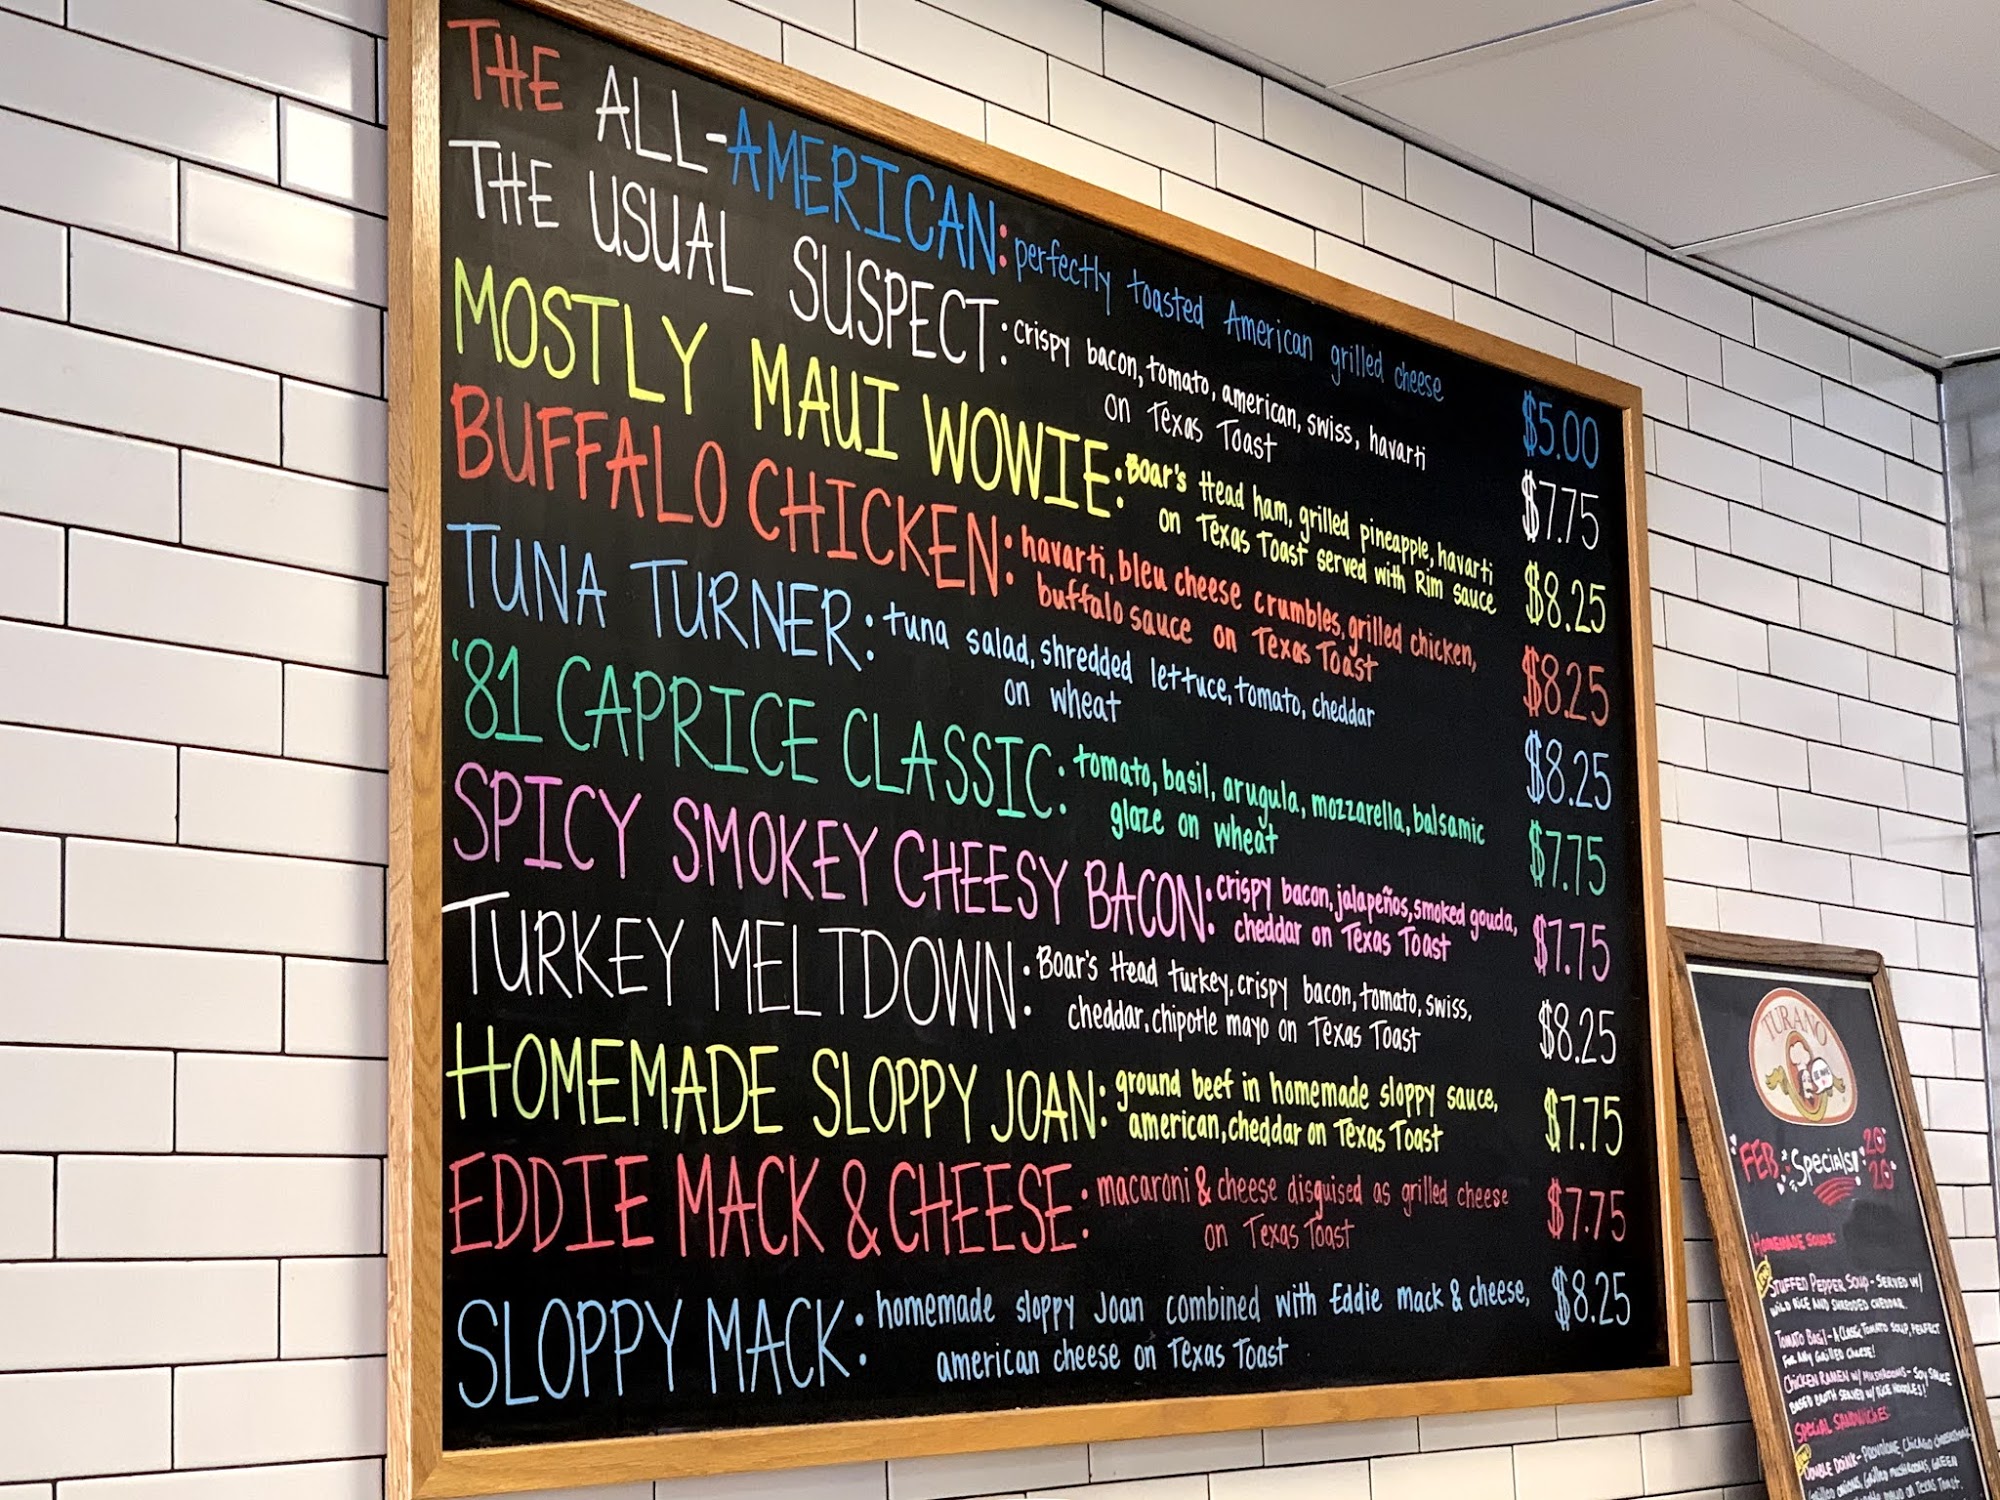 THE ALL-AMERICAN: perfectly toasted American grilled cheese $5.00
THE USUAL SUSPECT: crispy bacon, tomato, american, swiss, havarti $7.75
on Texas Toast
MOSTLY MAUI WOWIE: Boar's Head ham, grilled pineapple, havarti $8.25
on Texas Toast served with Rim sauce
BUFFALO CHICKEN: havarti, bleu cheese crumbles, grilled chicken, $8.25
buffalo sauce on Texas Toast
TUNA TURNER: tuna salad, shredded lettuce, tomato, cheddar $8.25
on wheat
'81 CAPRICE CLASSIC: tomato, basil, arugula, mozzarella, balsamic $7.75
glaze on wheat
SPICY SMOKEY CHEESY BACON: crispy bacon, jalapeños, smoked gouda, $7.75
cheddar on Texas Toast
TURKEY MELTDOWN: Boar's Head turkey, crispy bacon, tomato, swiss, $8.25
cheddar, chipotle mayo on Texas Toast
HOMEMADE SLOPPY JOAN: ground beef in homemade sloppy sauce, $7.75
american, cheddar on Texas Toast
EDDIE MACK & CHEESE: macaroni & cheese disguised as grilled cheese $7.75
on Texas Toast
SLOPPY MACK: homemade sloppy Joan combined with Eddie mack & cheese, $8.25
american cheese on Texas Toast
TURANO
FEB Specials! 2020
HOMEMADE SOUPS:
STUFFED PEPPER SOUP - SERVED W/
WILD RICE AND SHREDDED CHEDDAR.
TOMATO BASIL - A CLASSIC TOMATO SOUP, PERFECT
FOR ANY GRILLED CHEESE!
CHICKEN RAMEN W/ MUSHROOMS - SOY SAUCE
BASED BROTH SERVED W/ RICE NOODLES!
SPECIAL SANDWICHES
DOUBLE DOINK - PROVOLONE, CHICAGO
grilled onions, grilled mushrooms, GREEN
mayo on Texas Toast.